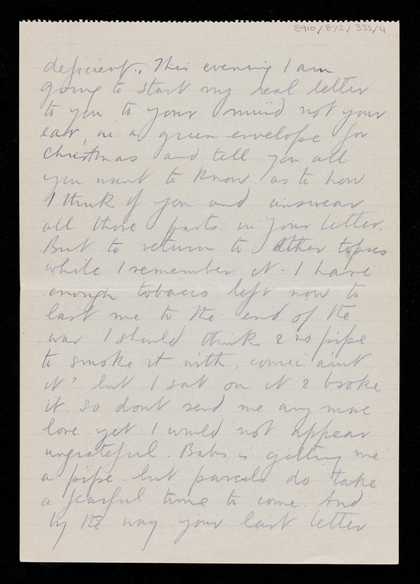 8910/8/2/335/4
deficient. This evening I am
going to start my real letter
to you to your mind not your
ear, in a green envelope for
Christmas and tell you all
you want to know as to how
I think of you and answear
all those parts in your letter.
But to return to other topics
while I remember it. I have
enough tobacco left now to
last me to the end of the
war I should think & no pipe
to smoke it with, comic aint
it? but I sat on it & broke
it so dont send me any more
love yet I would not appear
ungrateful. Babs is getting me
a pipe but parcels do take
a fearful time to come. And
by the way your last letter